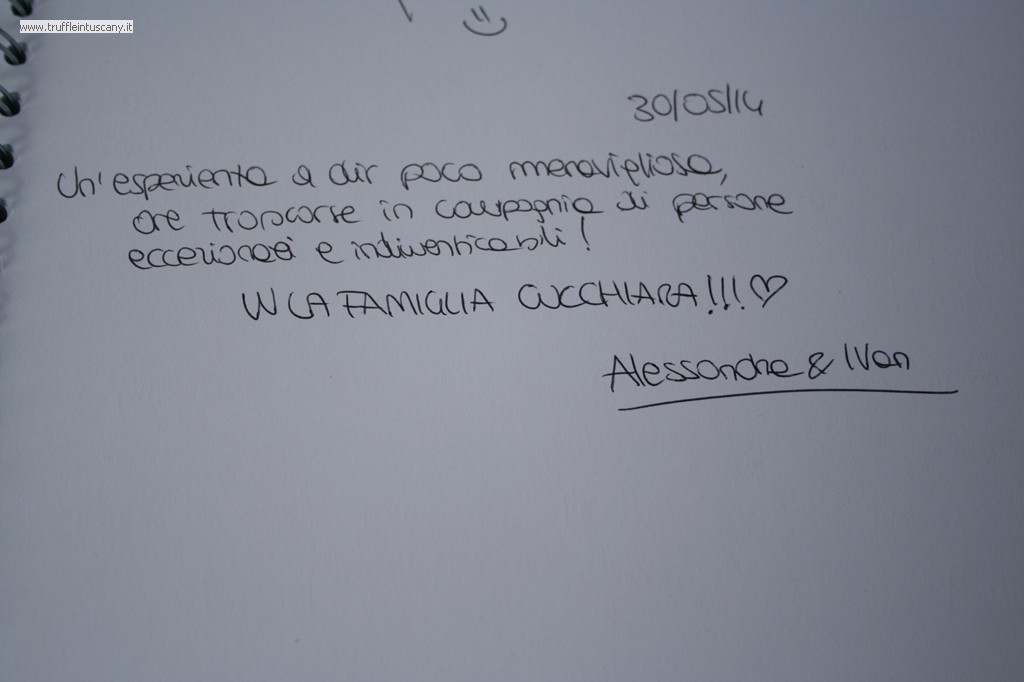 www.truffleintuscany.it
30/05/14
Un'esperienza a dir poco meravigliosa,
ore trascorse in compagnia di persone
eccezionali e indimenticabili!
W LA FAMIGLIA CUCCHIARA!!! ♡
Alessandra & Ivan